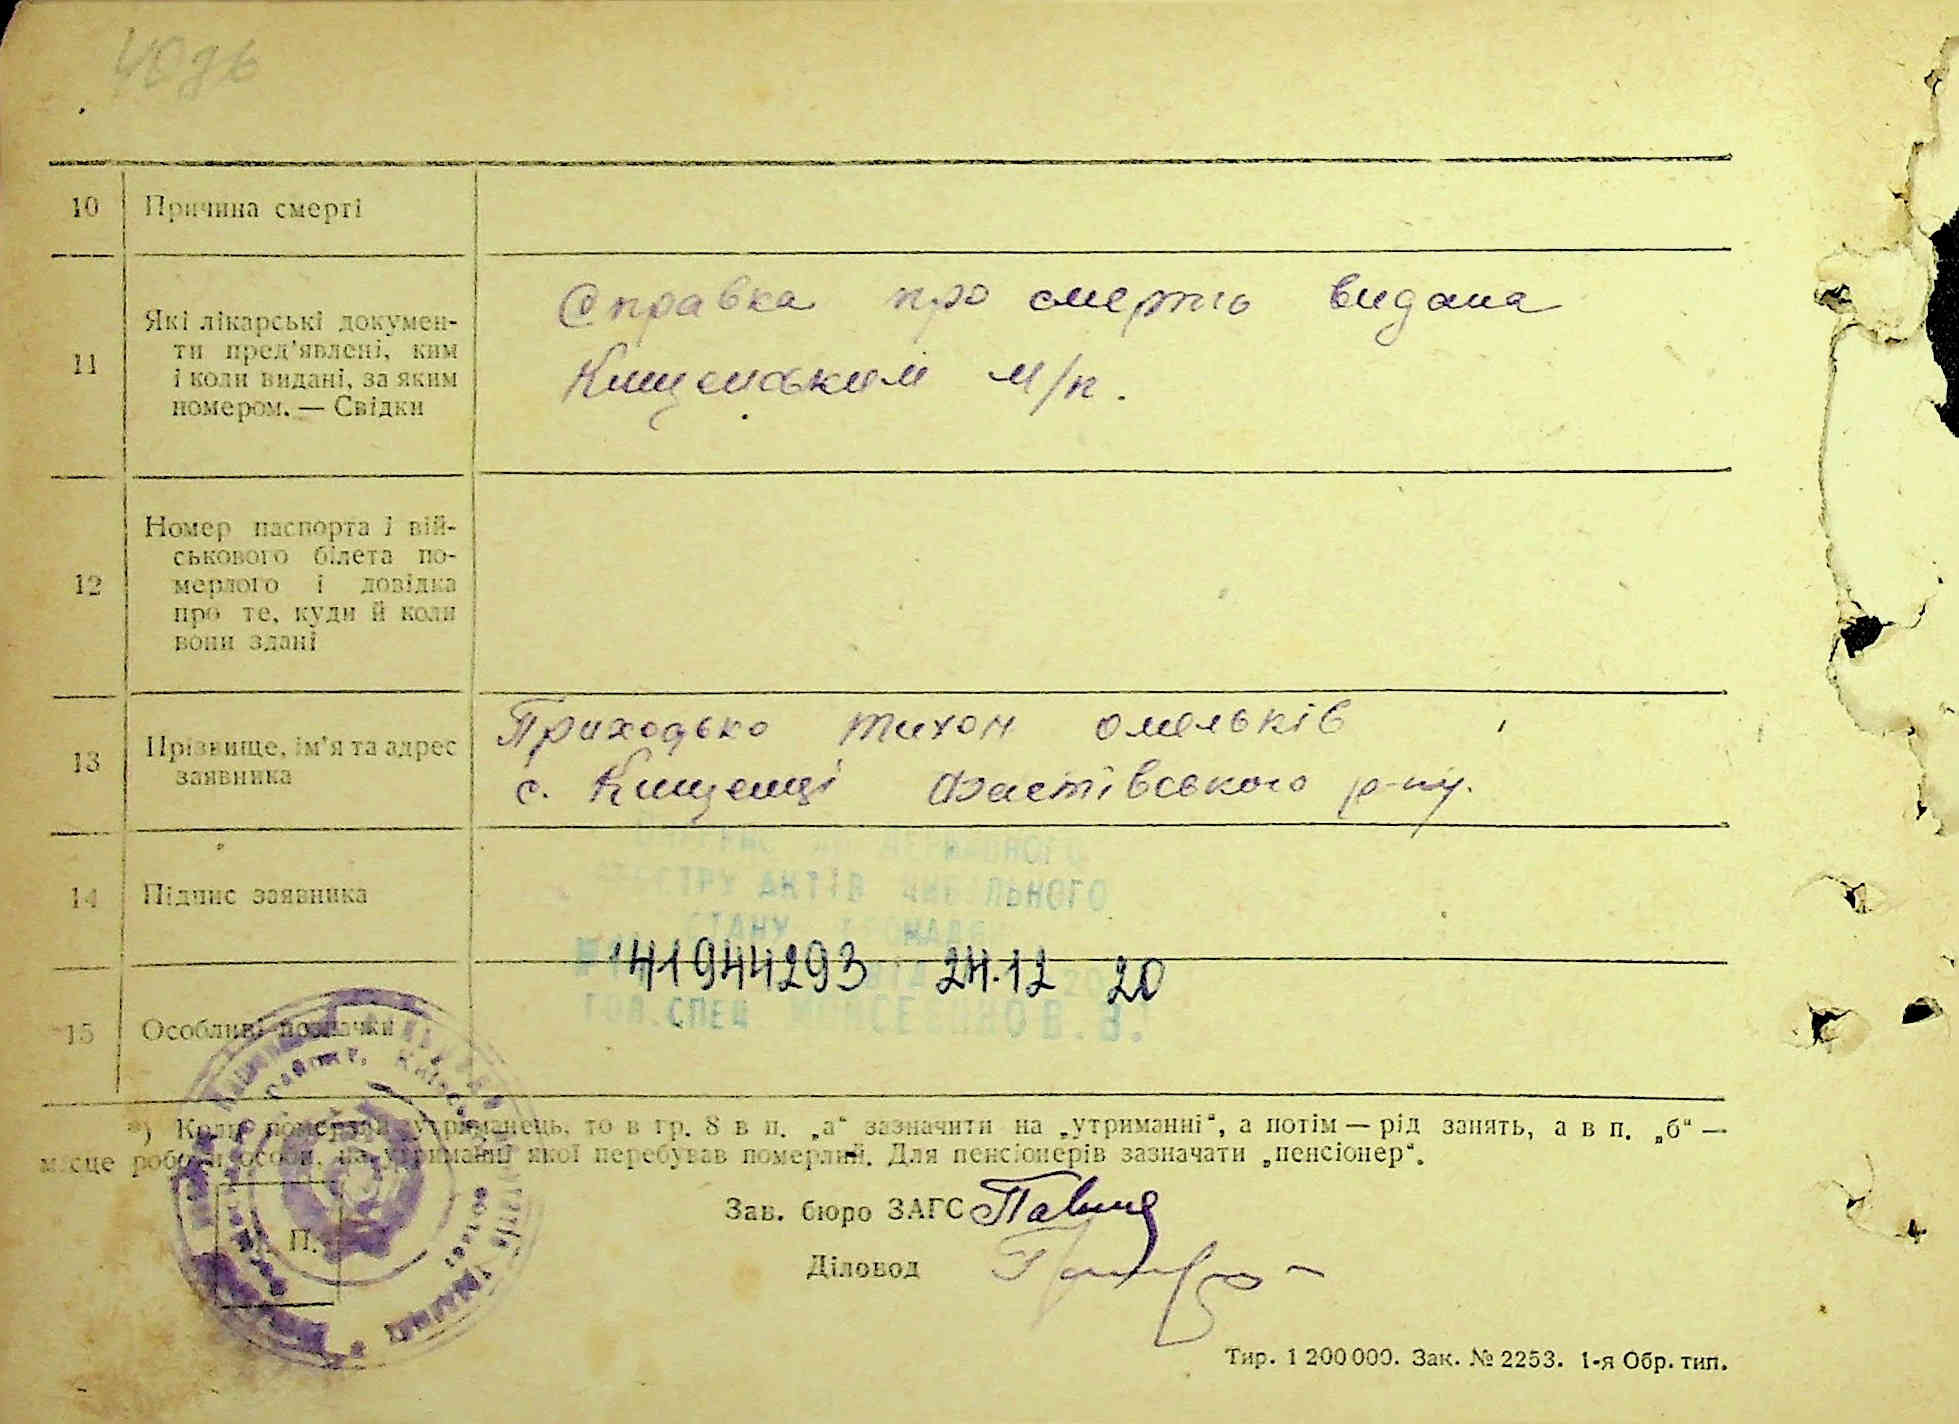 10 Причина смерті
11 Які лікарські докумен-
ти пред'явлені, ким
і коли видані, за яким
номером. — Свідки
Справка про смерть видана
Кищенським м/п.
12 Номер паспорта і вій-
ськового білета по-
мерлого і довідка
про те, куди й коли
вони здані
13 Прізвище, ім'я та адрес
заявника
Приходько Тихон Омельків
с. Кищенці Фастівського р-ну.
14 Підпис заявника
ДЕРЖАВНОГО
РЕЄСТРУ АКТІВ ЦИВІЛЬНОГО
СТАНУ ГРОМАДЯН
41944293 24.12 20
15 Особливі позначки
ГОЛ. СПЕЦ В. В.
*) Коли померлий утриманець, то в гр. 8 в п. „а“ зазначити на „утриманні“, а потім — рід занять, а в п. „б“ —
місце роботи особи, на утриманні якої перебував померлий. Для пенсіонерів зазначати „пенсіонер“.
М. П.
Зав. бюро ЗАГС
Діловод
Тир. 1 200 000. Зак. № 2253. 1-я Обр. тип.